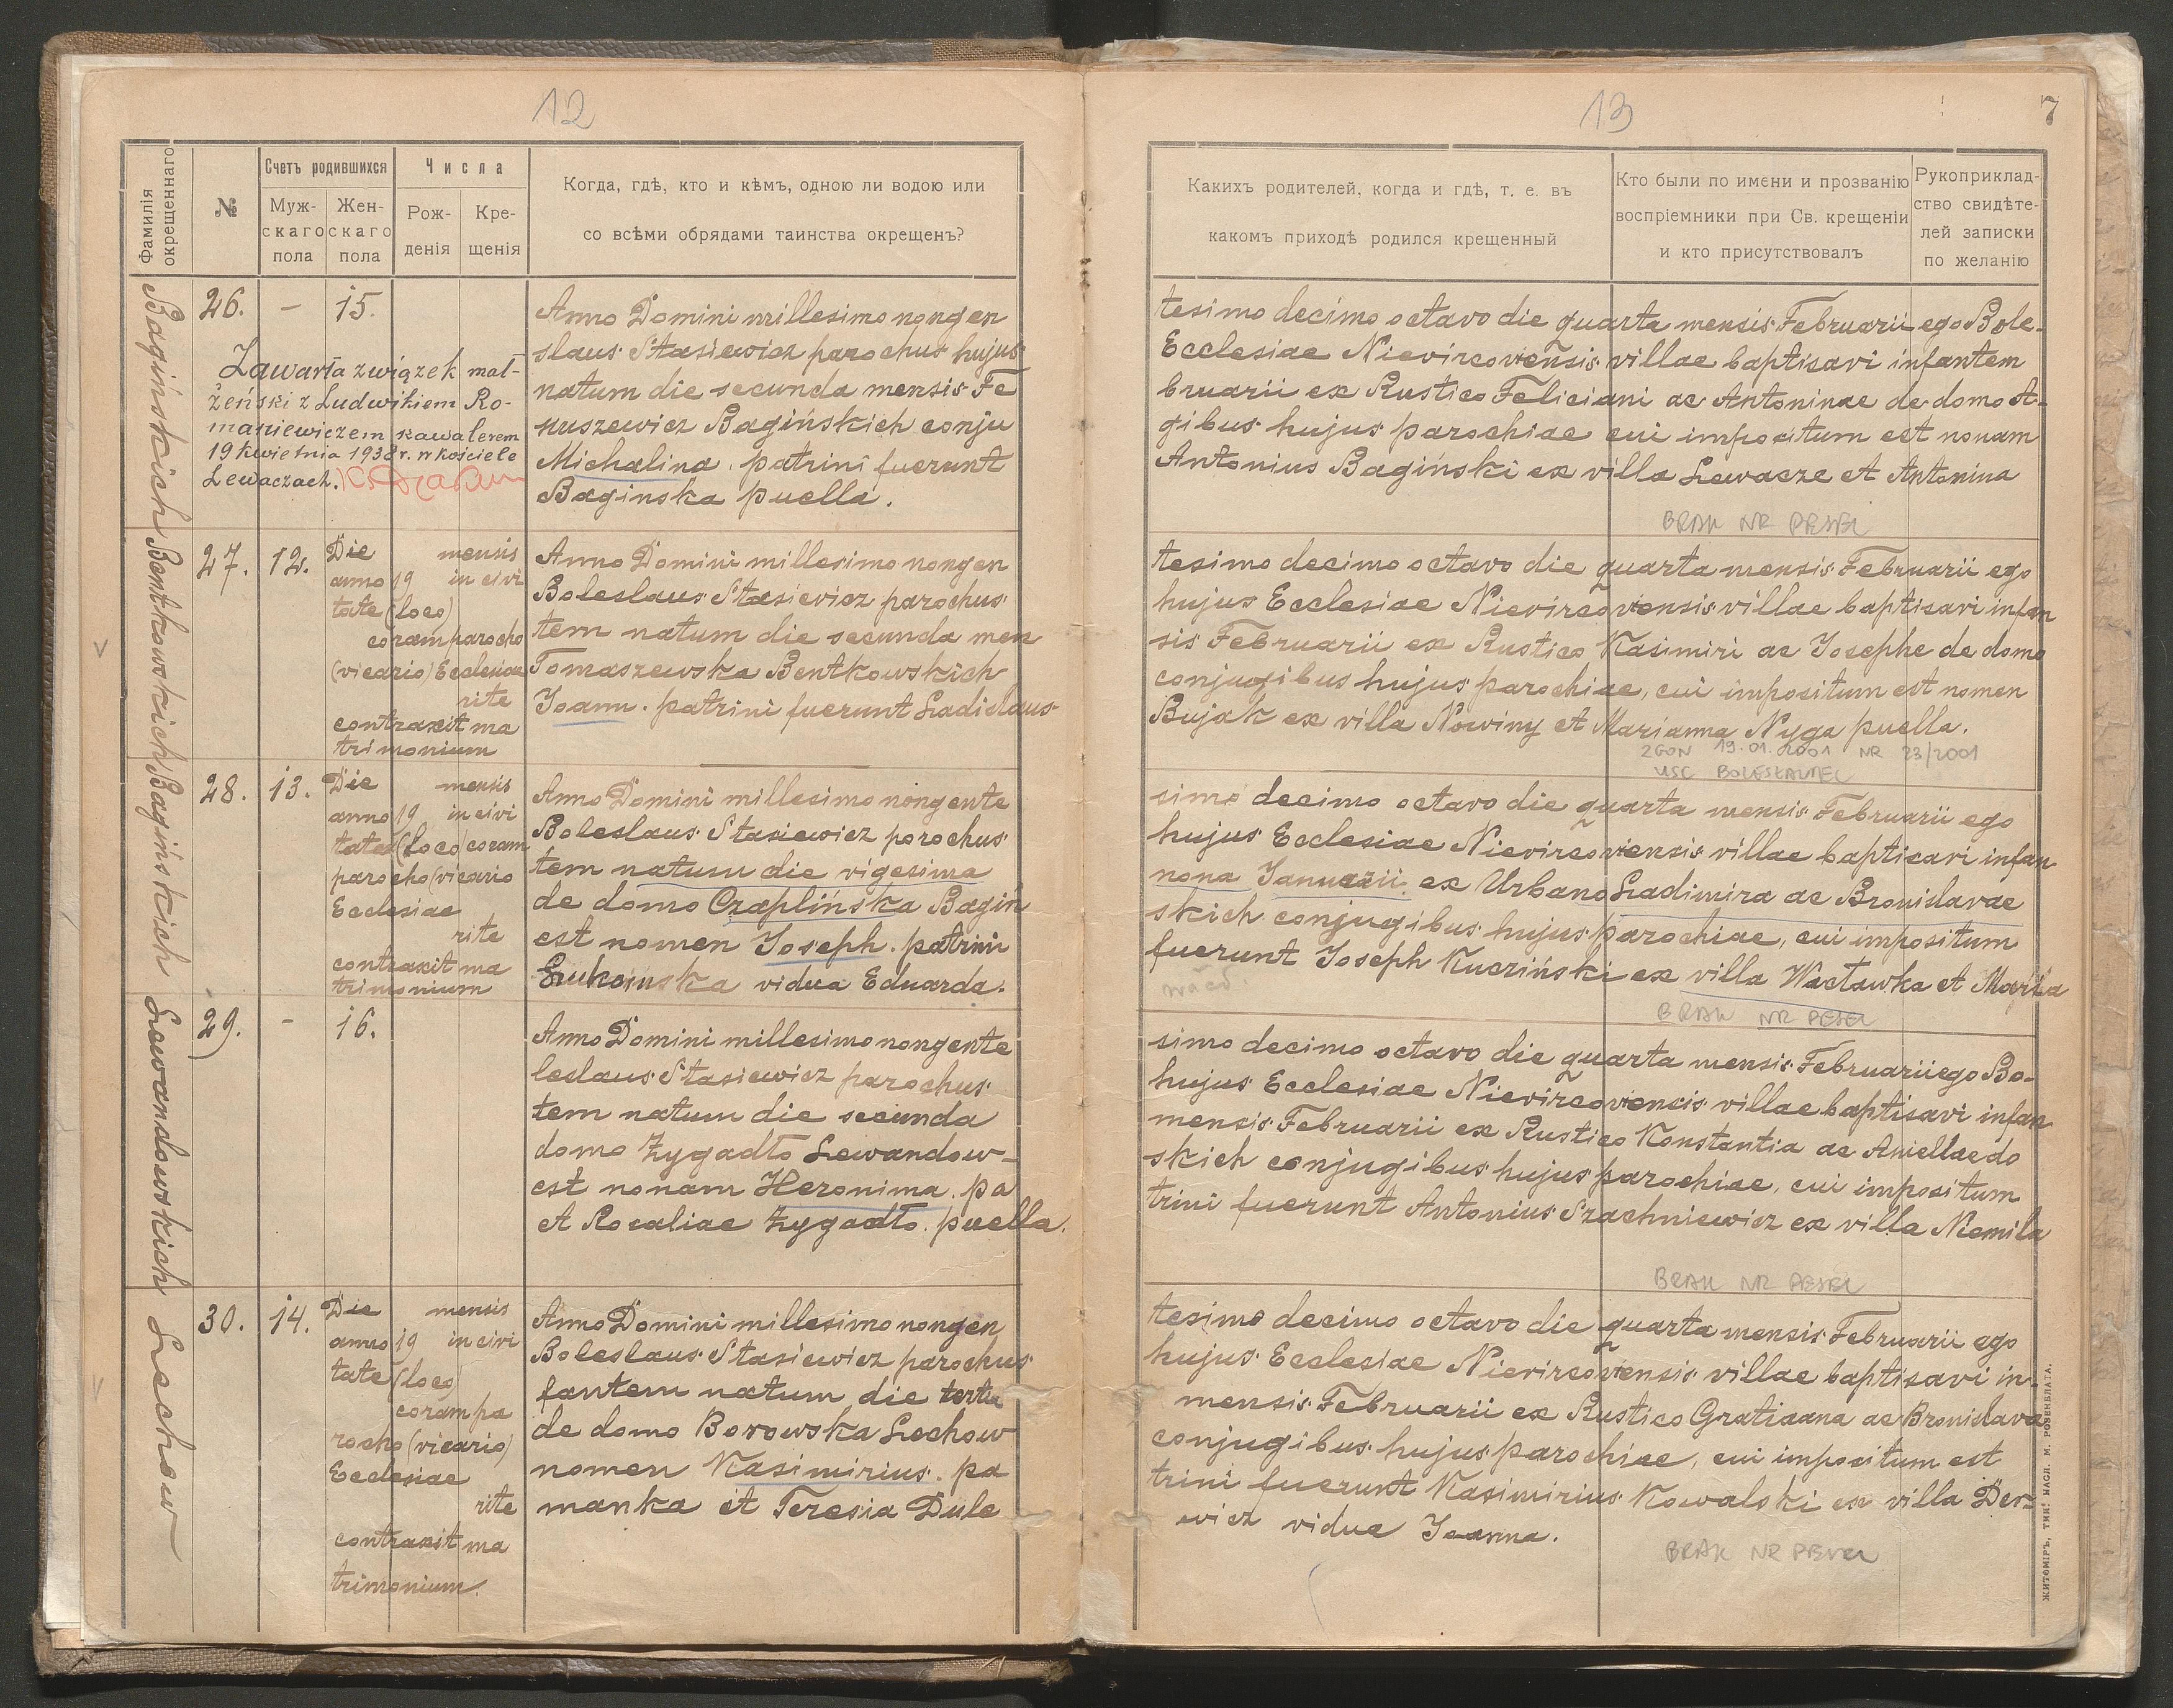 12
Фамилія окрещеннаго
№
Счетъ родившихся
Муж-
скаго
пола
Жен-
скаго
пола
Числа
Рож-
денія
Кре-
щенія
Когда, гдѣ, кто и кѣмъ, одною ли водою или
со всѣми обрядами таинства окрещенъ?
Bagińskich
26.
-
15.
Zawarła związek mał-
żeński z Ludwikiem Ro-
maniewiczem kawalerem
19 kwietnia 1938 r. w kościele
Lewaczach.
Anno Domini millesimo nongen
slaus Stasiewicz parochus hujus
natum die secunda mensis Fe
nuszewicz Bagińskich conju
Michalina. patrini fuerunt
Baginska puella.
Bentkowskich
27.
12.
Die mensis
anno 19 in civi
tate (loco)
coram parocho
(vicario) Ecclesiae
rite
contraxit ma
trimonium
Anno Domini millesimo nongen
Boleslaus Stasiewicz parochus
tem natum die secunda men
Tomaszewska Bentkowskich
Joann. patrini fuerunt Ladislaus
Bagińskich
28.
13.
Die mensis
anno 19 in civi
tate (loco) coram
parocho (vicario
Ecclesiae
rite
contraxit ma
trimonium
Anno Domini millesimo nongente
Boleslaus Stasiewicz porochus
tem natum die vigesima
de domo Czaplińska Bagiń
est nomen Joseph. patrini
vidua Eduarda.
Lewandowskich
29.
-
16.
Anno Domini millesimo nongente
leslaus Stasiewicz parochus
tem natum die secunda
domo Zygadło Lewandow-
est nonam Heronima. pa
et Rosaliae Zygadło. puella.
Lechow
30.
14.
Die mensis
anno 19 in civi
tate (loco)
coram pa
rocho (vicario)
Ecclesiae
rite
contraxit ma
trimonium.
Anno Domini millesimo nongen
Boleslaus Stasiewicz parochus
fantem natum die tertia
de domo Borowska Lechow
nomen Kasimirius. pa
manka et Teresia Dule
13
7
Какихъ родителей, когда и гдѣ, т. е. въ
какомъ приходѣ родился крещенный
Кто были по имени и прозванію
воспріемники при Св. крещеніи
и кто присутствовалъ
Рукоприклад-
ство свидѣте-
лей записки
по желанію
tesimo decimo octavo die quarta mensis Februarii ego Bole-
Ecclesiae Nievircoviensis villae baptisavi infantem
bruarii ex Rustico Feliciani ac Antoninae de domo A-
gibus hujus parochiae cui impositum est nonam
Antonius Bagiński ex villa Lewacze et Antonina
BRAK NR PESEL
tesimo decimo octavo die quarta mensis Februarii ego
hujus Ecclesiae Nievircoviensis villae baptisavi infan
sis Februarii ex Rustico Kasimiri ac Josephe de domo
conjugibus hujus parochiae, cui impositum est nomen
Bujak ex villa Nowiny et Marianna Nyga puella.
ZGON 19.01.2001 NR 23/2001
USC BOLESŁAWIEC
simo decimo octavo die quarta mensis Februarii ego
hujus Ecclesiae Nievircoviensis villae baptisavi infan
nona Januarii ex Urbano Ladimira ac Bronislavae
skich conjugibus hujus parochiae, cui impositum
fuerunt Joseph Kucziński ex villa Wacławka et Maria
BRAK NR PESEL
simo decimo octavo die quarta mensis Februarii ego Bo-
hujus Ecclesiae Nievircoviensis villae baptisavi infan
mensis Februarii ex Rustico Konstantia ac Aniellae do
skich conjugibus hujus parochiae, cui impositum
trini fuerunt Antonius Szachniewicz ex villa Niemila
BRAK NR PESEL
tesimo decimo octavo die quarta mensis Februarii ego
hujus Ecclesiae Nievircoviensis villae baptisavi in-
mensis Februarii ex Rustico Gratiana ac Bronislava
conjugibus hujus parochiae, cui impositum est
trini fuerunt Kasimirius Kowalski ex villa Der-
wicz vidua Joanna.
BRAK NR PESEL
ЖИТОМІРЪ, ТИП. НАСЛ. М. РОЗЕНБЛАТА.